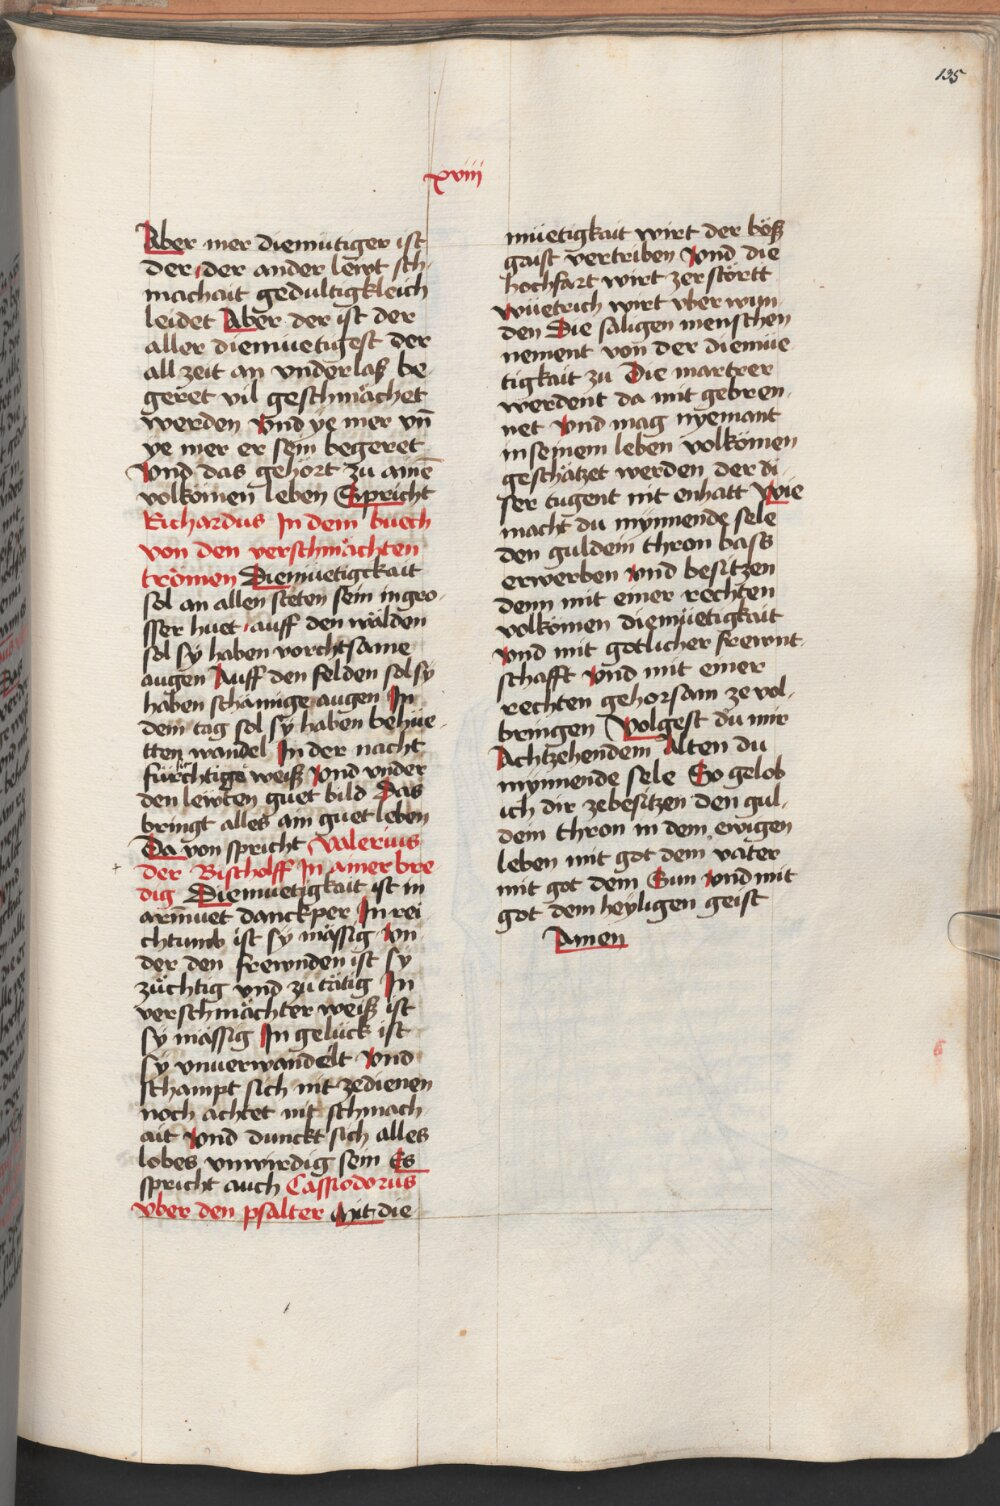 135
xviii
Aber mer diemütiger ist
der der ander lewt sch
machait gedultigkleich
leidet Aber der ist der
aller diemuetigest der
all zeit an vnderlaß be
geret vil geschmächet
werden Vnd ye mer vn̄
ye mer er sein begeret
Vnd das gehört zu ainē
volkömen leben Spricht
Richardus In dem buech
von den verschmächten
trömen Diemüetigckait
sol an allen steten sein in gro
sser huet auff den wälden
sol sy haben vorchtsame
augen Auff den felden sol sy
haben schamige augen In
dem tag sol sy haben behüe
tten wandel In der nacht
fürchtige weiß Vnd vnder
den lewten guet bild Das
bringt alles ain guet leben
Da von spricht Valerius
der Bischolff In ainer bre
dig Diemuetigkait ist in
armuet danckper In rei
chtumb ist sy mässig Vn
der den frewnden ist sy
züchtig vnd zu tätig In
verschmächter weiß ist
sy mässig In gelück ist
sy vnuerwandelt Vnd
schampt sich nit zedienen
noch achtet nit schmach
ait Vnd dunckt sich alles
lobes vnwirdig sein Es
spricht auch Cassiodorus
vber den psalter Mit die
müetigkait wirt der böß
gaist vertriben Vnd die
hochfart wirt zerstörtt
Wüetrich wirt vber wun
den Die säligen menschen
nement von der diemüe
tigkait zu Die martrer
werdent da mit gebren
net Vnd mag nyemant
in seinem leben volkömen
geschätzet werden der di
ser tugent nit enhatt Wie
macht du mynnende sele
den guldein thron bass
erwerben Vnd besitzen
denn mit einer rechten
volkömen diemüetigkait
Vnd mit gotlicher frewnt
schafft Vnd mit einer
rechten gehorsam ze vol
bringen Volgest du mir
Achtzehendem Alten du
mynnende sele So gelob
ich dir ze besitzen den gul
dem thron in dem ewigen
leben mit got dem vater
mit got dem Sun Vnd mit
got dem heyligen geist
Amen